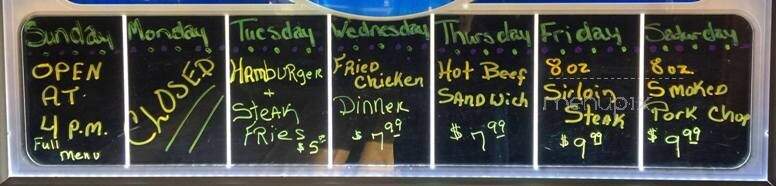 Sunday
OPEN
AT
4 P.M.
Full
Menu
Monday
CLOSED
Tuesday
HAMBURGER
+
STEAK
FRIES
$5⁰⁰
Wednesday
FRIED
Chicken
DINNER
$7⁹⁹
Thursday
Hot Beef
SANDWich
$7⁹⁹
Friday
8 oz
Sirloin
STEAK
$9⁹⁹
Saturday
8 oz.
Smoked
Pork Chop
$9⁹⁹
menupix